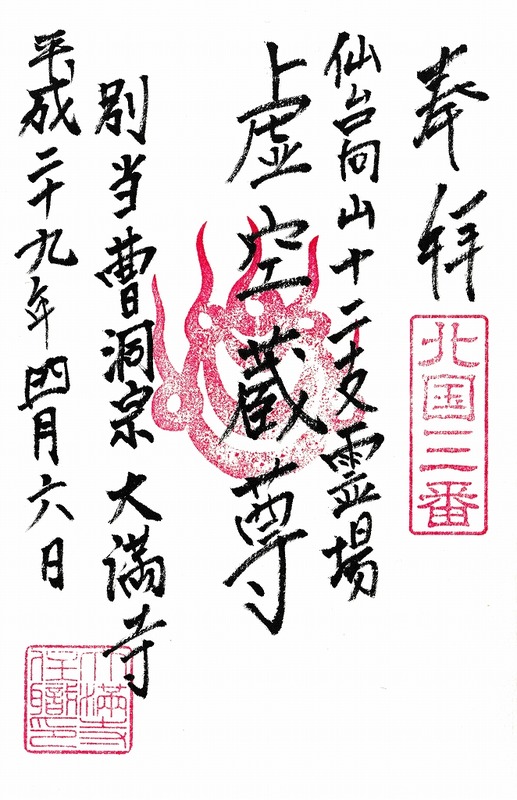 奉拝
北国三番
仙台向山十二支霊場
虚空蔵尊
別当曹洞宗大満寺
平成二十九年四月六日
大満寺
住職印